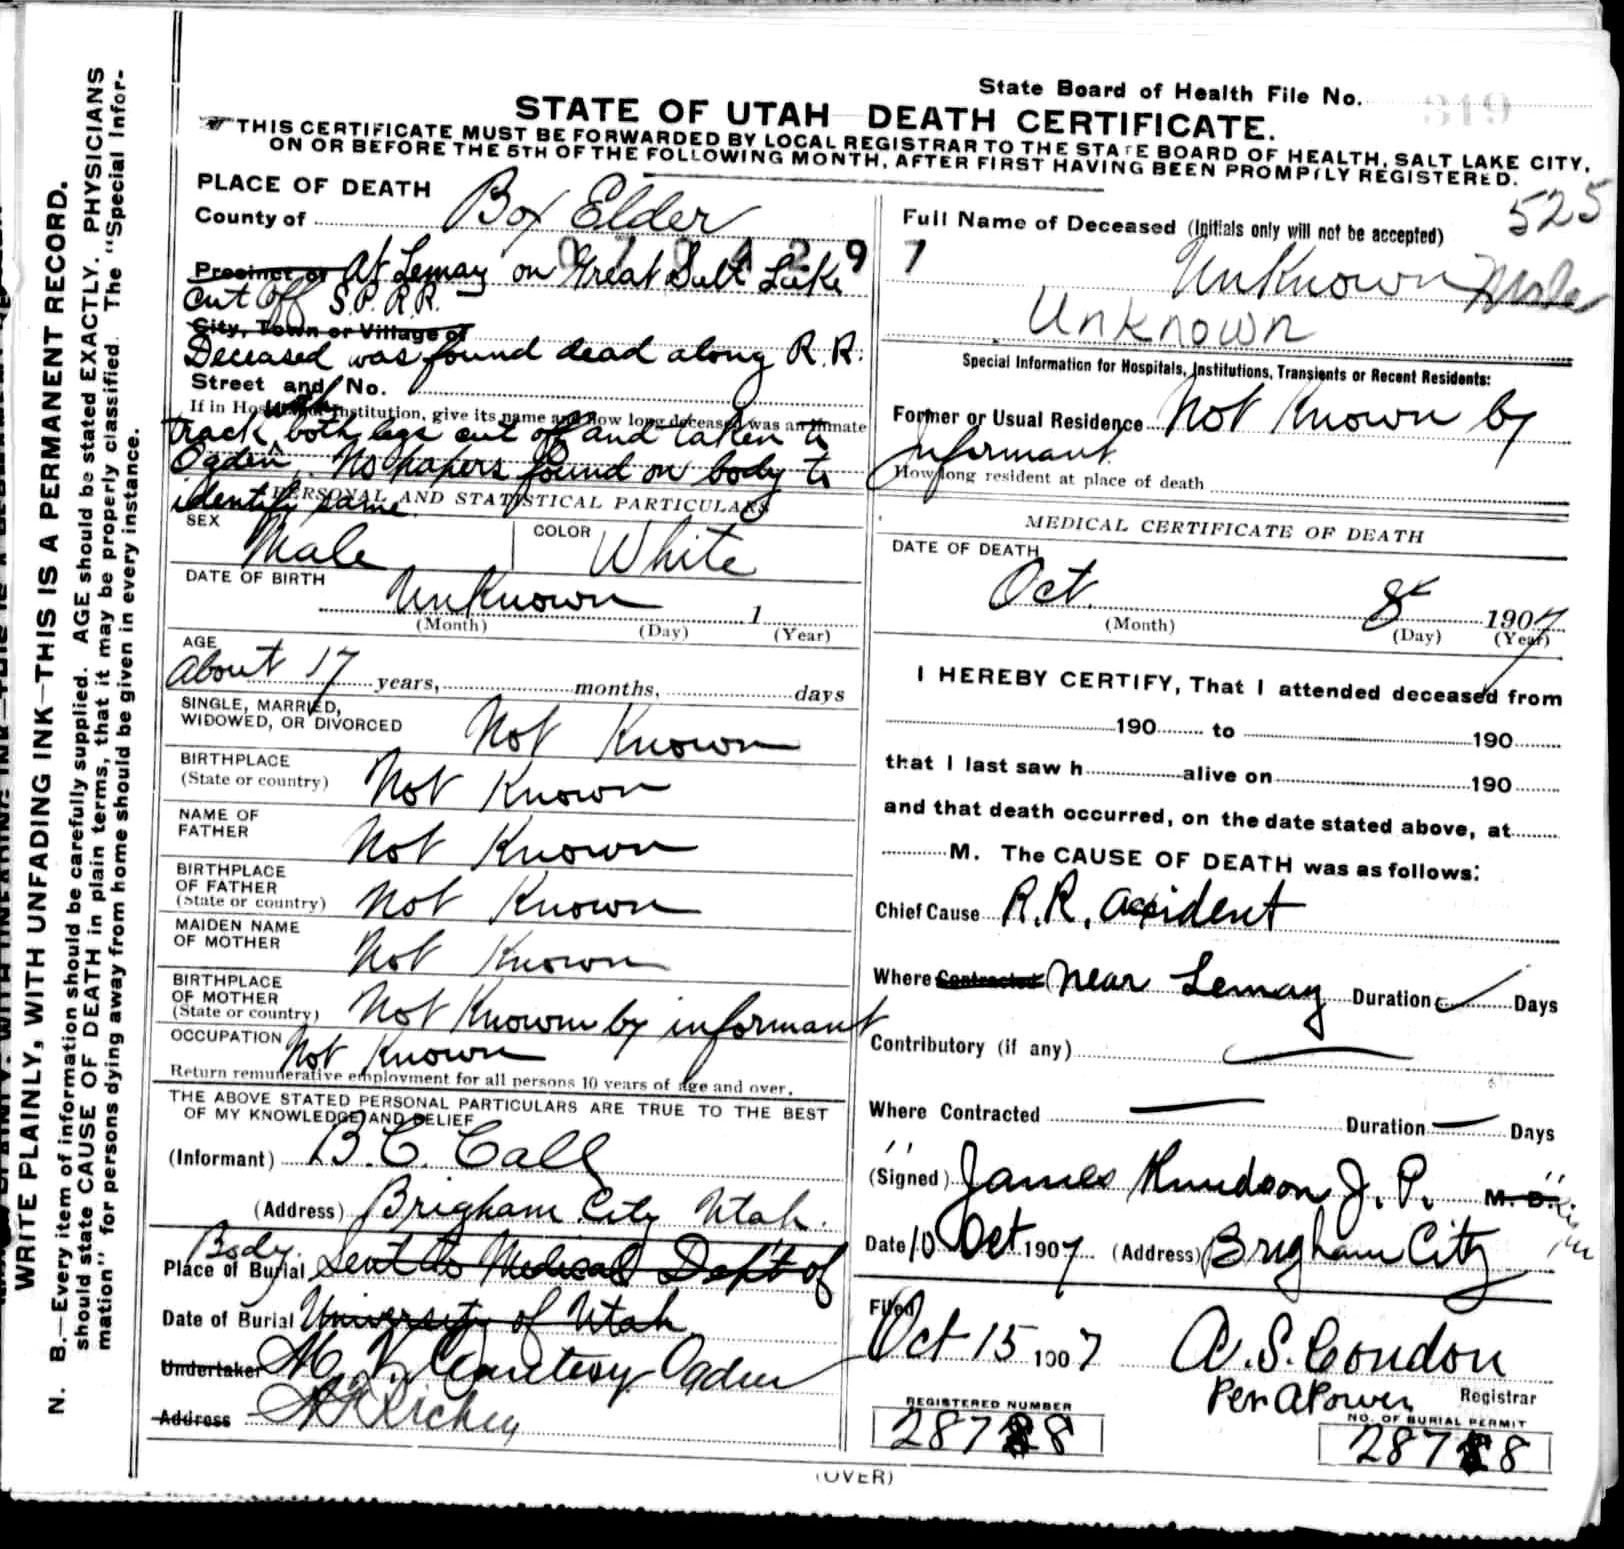 State Board of Health File No. 319
STATE OF UTAH DEATH CERTIFICATE.
THIS CERTIFICATE MUST BE FORWARDED BY LOCAL REGISTRAR TO THE STATE BOARD OF HEALTH, SALT LAKE CITY,
ON OR BEFORE THE 5TH OF THE FOLLOWING MONTH, AFTER FIRST HAVING BEEN PROMPTLY REGISTERED.
525
N. B.—Every item of information should be carefully supplied. AGE should be stated EXACTLY. PHYSICIANS
should state CAUSE OF DEATH in plain terms, that it may be properly classified. The "Special Infor-
mation" for persons dying away from home should be given in every instance.
WRITE PLAINLY, WITH UNFADING INK—THIS IS A PERMANENT RECORD.
PLACE OF DEATH
County of Box Elder
Precinct of At Lemay on Great Salt Lake
cut off S.P.R.R.
City, Town or Village of
Deceased was found dead along R.R.
Street and No.
If in Hospital or Institution, give its name and how long deceased was an inmate
track both legs cut off and taken to
Ogden. No papers found on body to
identify same.
PERSONAL AND STATISTICAL PARTICULARS
SEX Male
COLOR White
DATE OF BIRTH Unknown 1
(Month) (Day) (Year)
AGE
about 17 years, months, days
SINGLE, MARRIED,
WIDOWED, OR DIVORCED Not Known
BIRTHPLACE
(State or country) Not Known
NAME OF
FATHER Not Known
BIRTHPLACE
OF FATHER
(State or country) Not Known
MAIDEN NAME
OF MOTHER Not Known
BIRTHPLACE
OF MOTHER
(State or country) Not Known by informant
OCCUPATION Not Known
Return remunerative employment for all persons 10 years of age and over.
THE ABOVE STATED PERSONAL PARTICULARS ARE TRUE TO THE BEST
OF MY KNOWLEDGE AND BELIEF
(Informant) B.C. Call
(Address) Brigham City Utah.
Body
Place of Burial Sent to Medical Dept of
Date of Burial University of Utah
Undertaker Ogden
Address Richey
Full Name of Deceased (Initials only will not be accepted)
Unknown Male
Unknown
Special Information for Hospitals, Institutions, Transients or Recent Residents:
Former or Usual Residence Not Known by
Informant
How long resident at place of death
MEDICAL CERTIFICATE OF DEATH
DATE OF DEATH
Oct. 8 1907
(Month) (Day) (Year)
I HEREBY CERTIFY, That I attended deceased from
190 to 190
that I last saw h alive on 190
and that death occurred, on the date stated above, at
M. The CAUSE OF DEATH was as follows:
Chief Cause R.R. accident
Where Contracted Near Lemay Duration Days
Contributory (if any)
Where Contracted Duration Days
(Signed) James Knudson J.P. M.D.
Date 10 Oct. 1907 (Address) Brigham City
Filed
Oct 15 1907 A.S. Condon
Per A Power Registrar
REGISTERED NUMBER
28788
NO. OF BURIAL PERMIT
28788
(OVER)